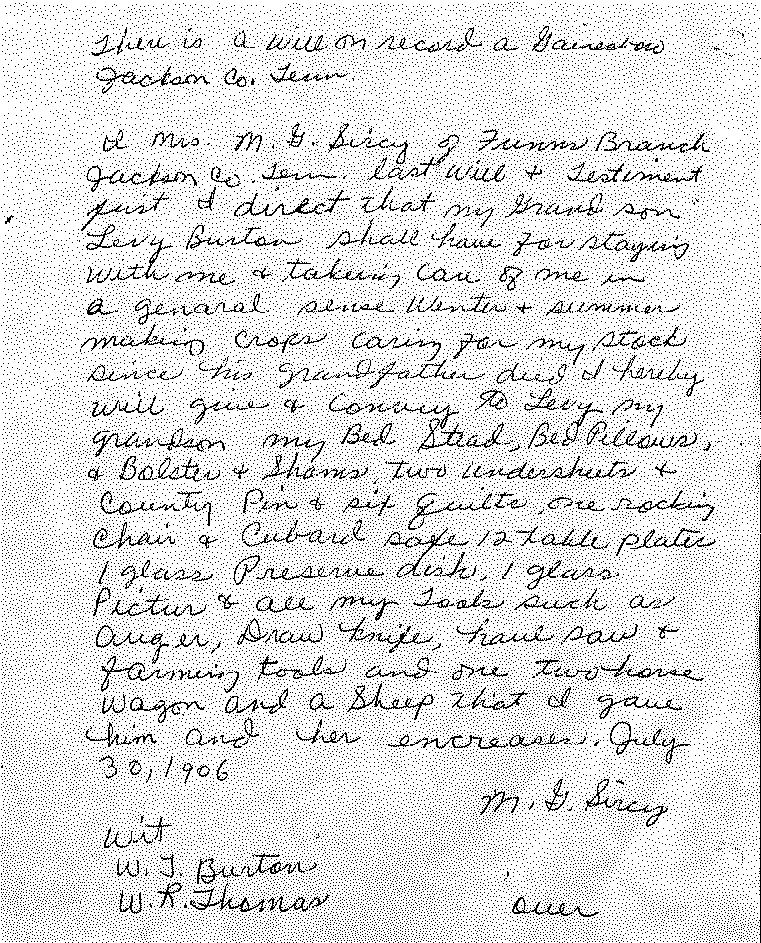 There is a will on record a Gainesbow
Jackson Co. Tenn.
I Mrs. M. G. Sircy of Funns Branch
Jackson Co Tenn. last will + Testiment
furst I direct that my Grand son
Levy Burton shall have for staying
with me & takeing Care of me in
a genaral sense Winter + summer
making Crops Caring for my stock
since his grandfather died I hereby
will give & Convey To Levy my
grandson my Bed Stead, Bed Pillows,
& Bolster & Shams, two undersheets +
County Pin & six quilts, one rocking
Chair & Cubard safe 12 table plates
1 glass Preserve dish, 1 glass
Pictur & all my Tools such as
auger, Draw knife, hand saw +
farming tools and one two horse
Wagon and a Sheep that I gave
him and her encreases. July
30, 1906
M. G. Sircy
Wit
W. T. Burton
W. R. Thomas
over